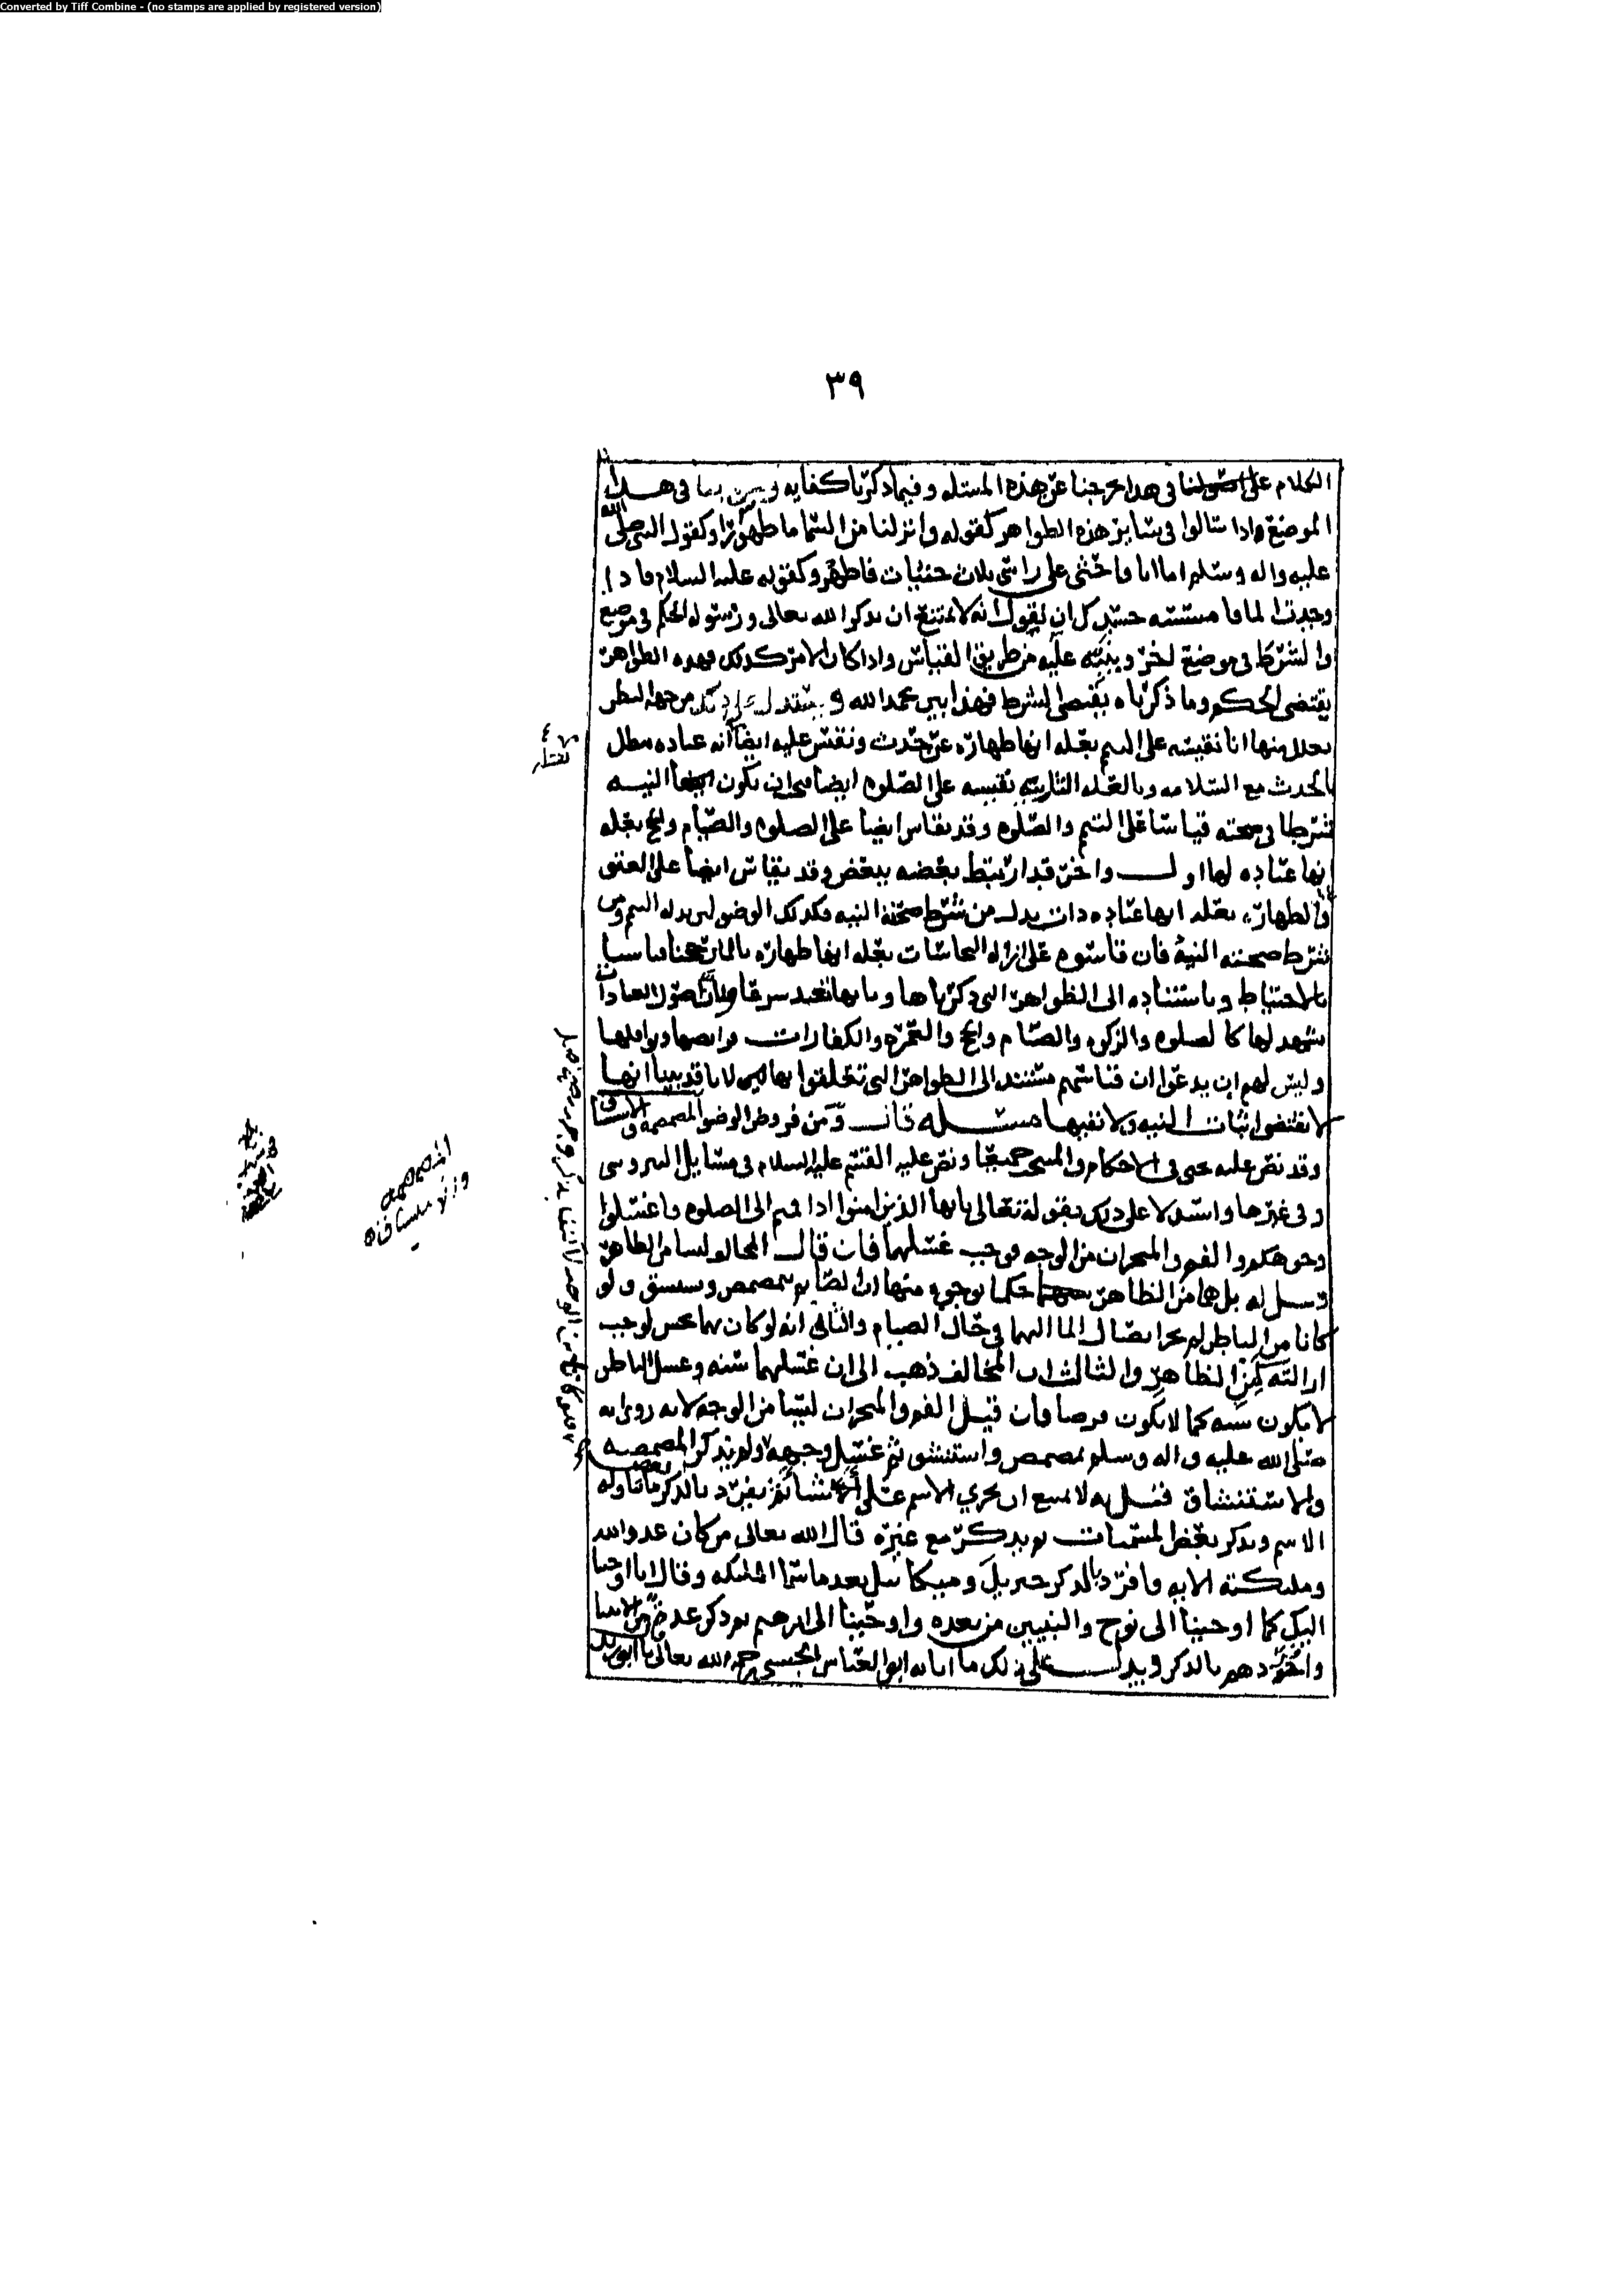 Converted by Tiff Combine - (no stamps are applied by registered version)
٣٩
الكلام على اصولنا في هدا خرجنا عن هذه المسئله وفيما دكرنا كفايه في هدا
الموضع وادا سالوا في ساير هذه الطواهر كقوله وانزلنا من السما ما طهورا وكقول النبي صلى الله
عليه واله وسلم اما انا فاحثى على راسي ثلاث حثيات فاطهر وكقوله عليه السلام فادا
وجدت الما فامسسه جسدك ان يقول انه لا يمتنع ان يدكر الله تعالى ورسوله الحكم في موضع
والشرط في موضع اخر وينبه عليه من طريق القياس واذا كان الامر كدلك فهده الطواهر
يقتضى الحكم وما ذكرناه يقتصى الشرط فهذا بين بحمد الله من جهه النطر
بعلل منها انا نقيسه على التيمم بعله انها طهاره عن حدث ونقيس عليه ايضا انه عباده تبطل
بالحدث مع السلامه وبالعله الثانيه نقيسه على الصلوه ايضا فيجب ان يكون النيه
شرطا في صحته قياسا على التيمم والصلوه وقد يقاس ايضا على الصلوه والصيام والحج بعله
انها عباده لها اول واخر قد ارتبط بعضه ببعض وقد يقاس ايضا على العتق
والطهار بعله انها عباده دات بدل من شرط صحته النيه فكدلك الوضو لان بدله التيمم ومن
شرط صحته النيه فان قاسوه على ازاله النجاسات بعله انها طهاره بالما رجحنا قياسنا
بالاحتياط وباستناده الى الظواهر التي دكرناها وبانها تفيد شرعا وبان اصول العبادات
تشهد لها كالصلوه والزكوه والصيام والحج والعمره والكفارات فرايضها ونوافلها
وليس لهم ان يدعوا ان قياسهم مستند الى الطواهر التي تعلقوا بها لانا قد بينا انها
لا تقتضى اثبات النيه ولا نفيها مسئله قال ومن فروض الوضو المضمضه والاستنشاق
وقد نص عليه يحيى في الاحكام والمنتخب جميعا ونص عليه القسم عليه السلام في مسايل النيروسي
وفي غيرها واستدلا على ذلك بقوله تعالى يايها الذين امنوا ادا قمتم الى الصلوه فاغسلوا
وجوهكم والفم والمنخران من الوجه فوجب غسلهما فان قال المخالف ليسا من الظاهر
قيل له بل هما من الظاهر حكما لوجوه منها ان الصايم يتمضمض ويستنشق ولو
كانا من الباطن لم يجز ايصال الما اليهما في حال الصيام والثاني انه لو كان بهما نجس لوجب
ازالته كمن الظاهر والثالث ان المخالف ذهب الى ان غسلهما سنه وغسل الباطن
لا يكون سنه كما لا يكون فرضا فان قيل الفم والمنخران ليسا من الوجه لانه روي انه
صلى الله عليه واله وسلم تمضمض واستنشق ثم غسل وجهه ولم يذكر المضمضه
والاستنشاق قيل له لا يمتنع ان يجري الاسم على اشيا ثم يفرد بالدكر بعض ما تناوله
الاسم ويدكر بعض المسميات ثم يدكر مع غيره قال الله تعالى من كان عدوا لله
وملئكته الايه فافرد بالدكر جبريل وميكائيل بعد دكر الملئكه وقال انا اوحينا
اليك كما اوحينا الى نوح والنبيين من بعده واوحينا الى ابرهيم ثم دكر عده من الانبيا
وافردهم بالدكر ويدل على ذلك ما انا به ابو العباس الحسني رحمه الله تعالى نا ابو زيد
المضمضه
والاستنشاق